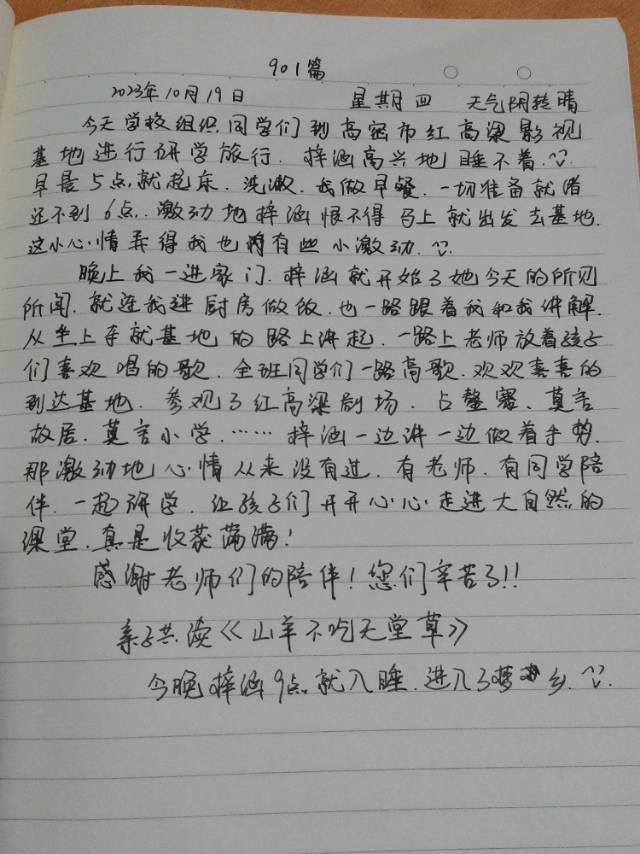 901篇
2023年10月19日 星期四 天气阴转晴
今天学校组织同学们到高密市红高粱影视
基地进行研学旅行.梓涵高兴地睡不着.
早晨5点就起床.洗漱.我做早餐.一切准备就绪
还不到6点.激动地梓涵恨不得马上就出发去基地.
这小心情弄得我也有些小激动.
晚上我一进家门.梓涵就开始了她今天的所见
所闻.就连我进厨房做饭.也一路跟着我和我讲解.
从坐上车就基地的路上讲起.一路上老师放着孩子
们喜欢唱的歌.全班同学们一路高歌.欢欢喜喜的
到达基地.参观了红高粱剧场.占鳌寨、莫言
故居.莫言小学.……梓涵一边讲一边做着手势.
那激动地心情从来没有过.有老师.有同学陪
伴.一起研学.让孩子们开开心心走进大自然的
课堂.真是收获满满!
感谢老师们的陪伴!您们辛苦了!!
亲子共读《山羊不吃天堂草》
今晚梓涵9点就入睡.进入了梦乡.